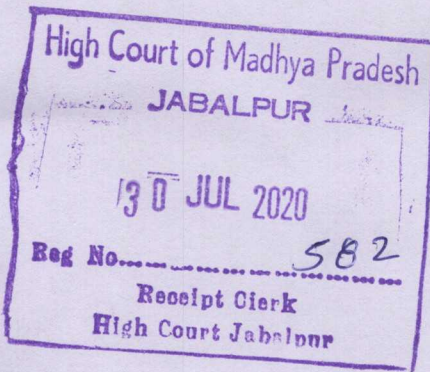 High Court of Madhya Pradesh
JABALPUR
30 JUL 2020
Reg No. 582
Receipt Clerk
High Court Jabalpur